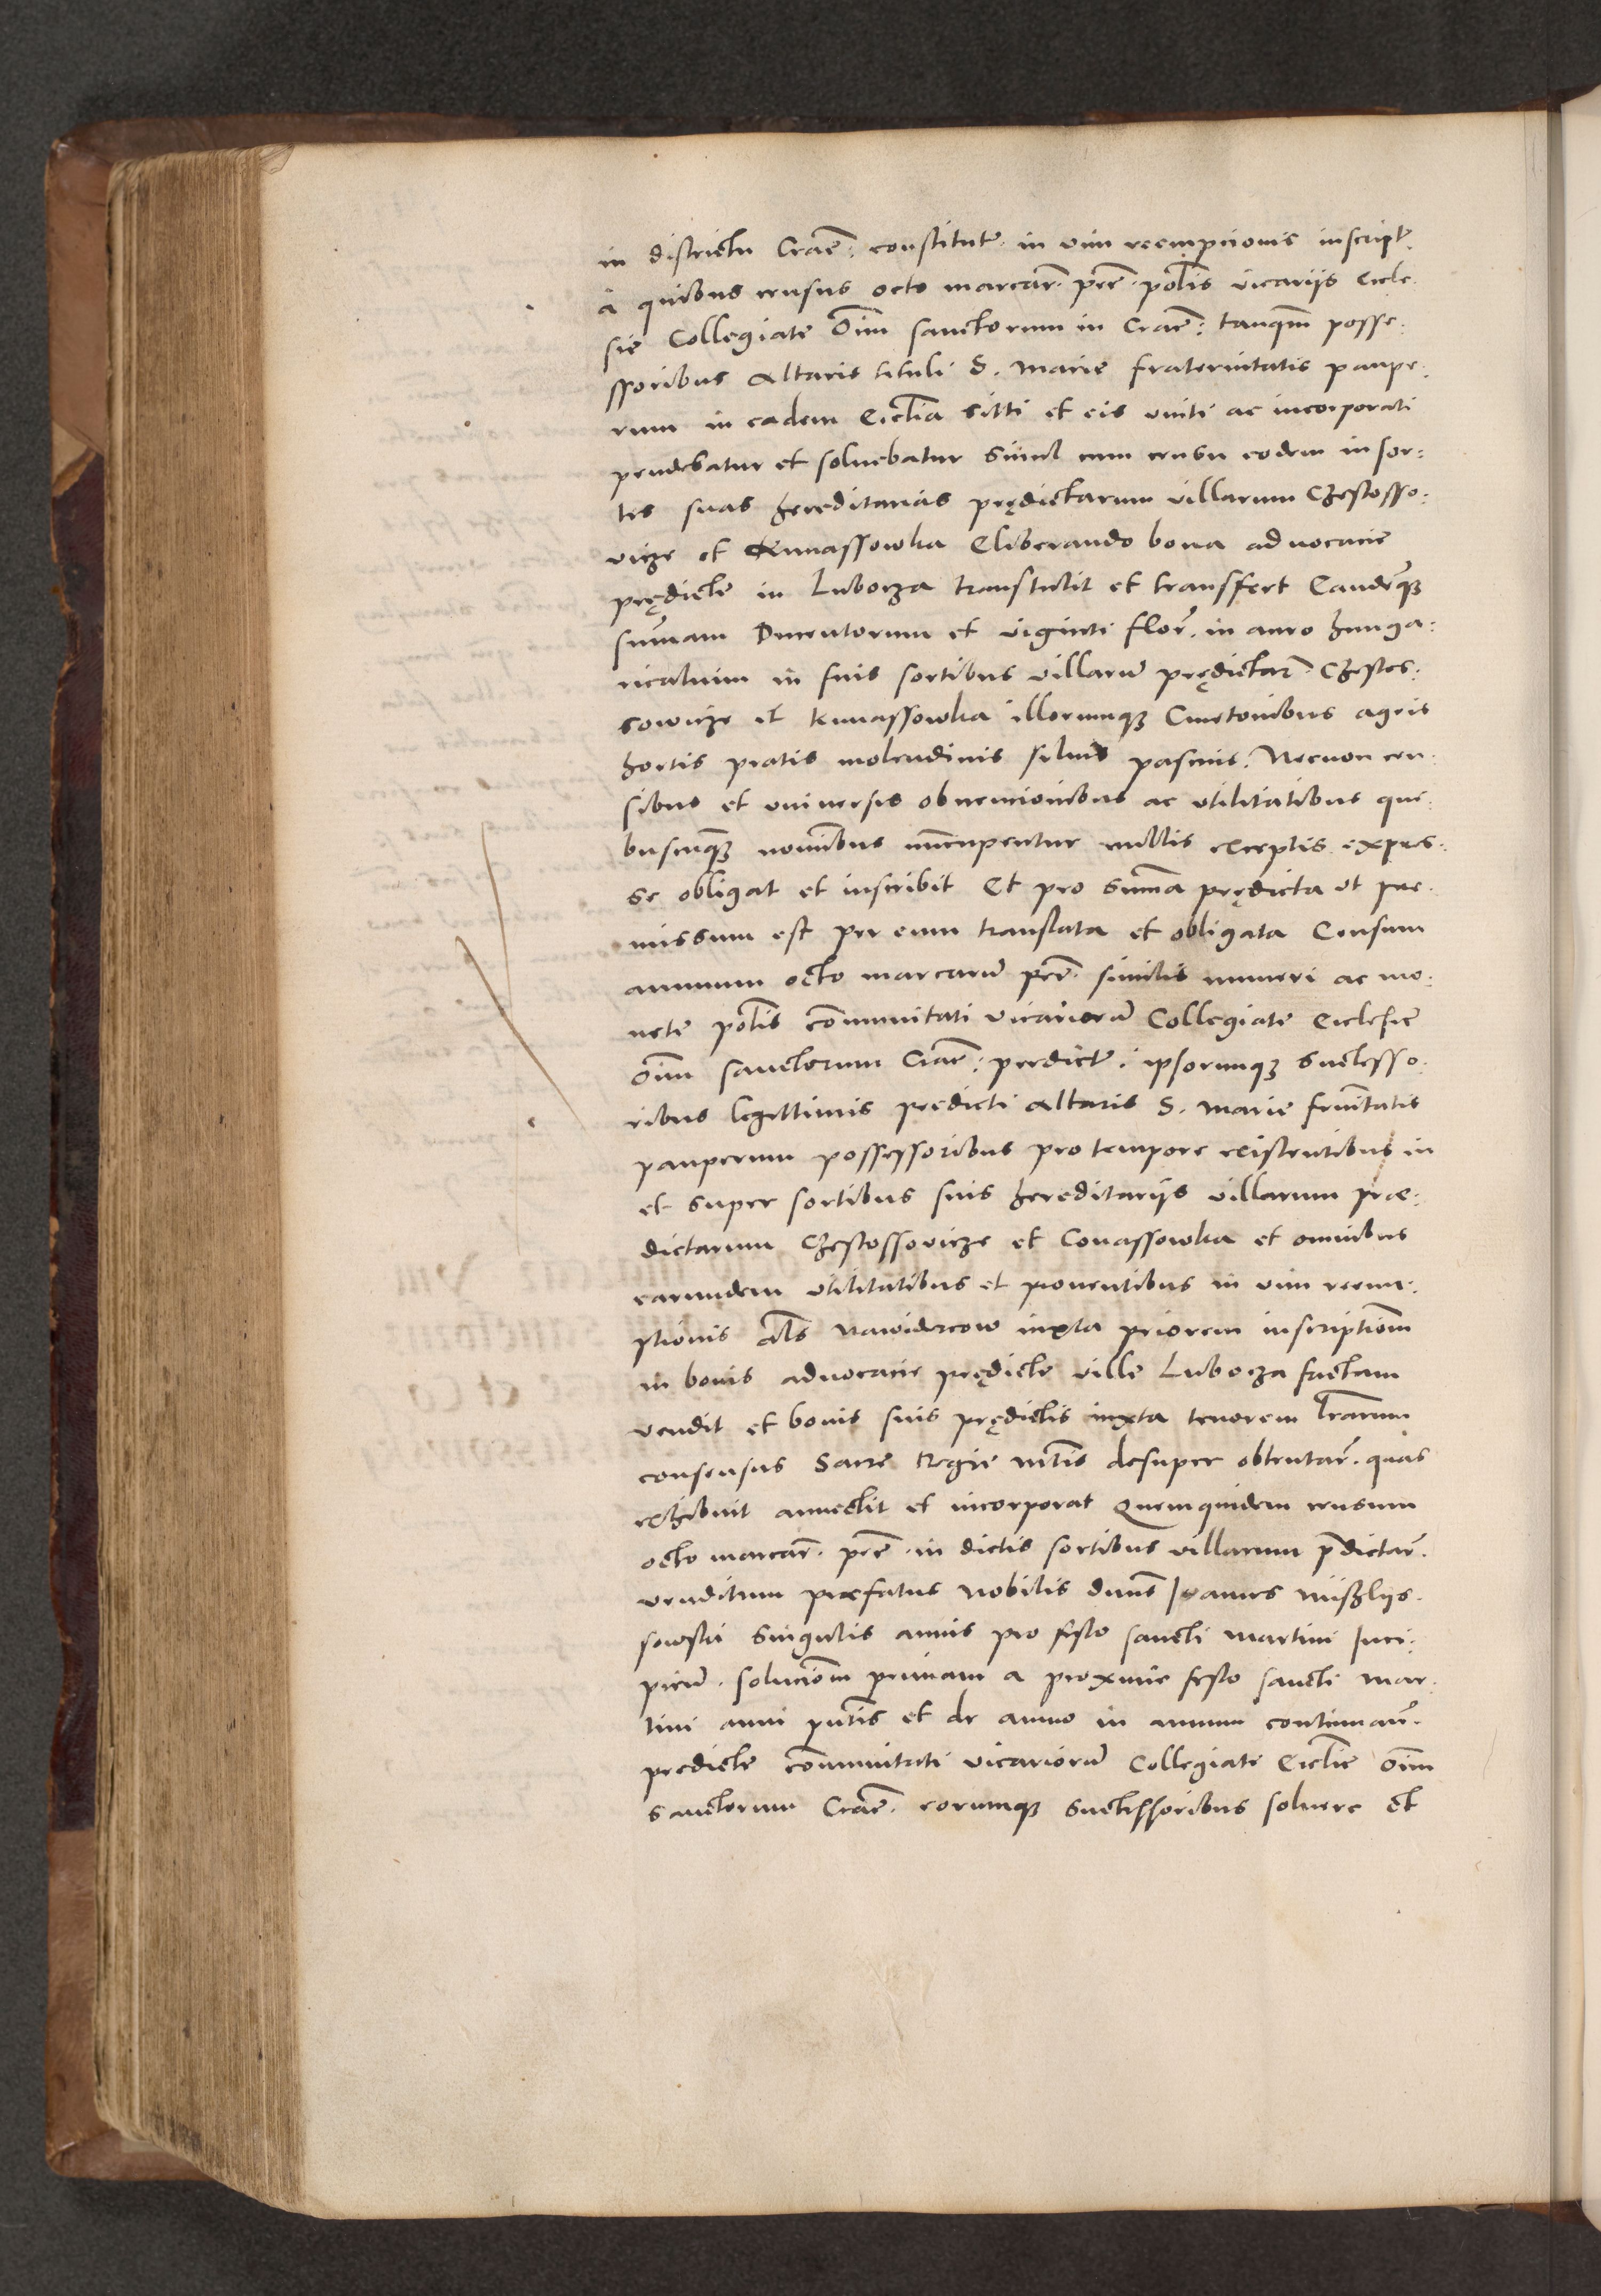 in districtu Crac̃: constitut̃ in vim reempcionis inscript̃
à quibus census octo marcar̃. pec̃. polĩs vicariis Eccle
sie Collegiate Oĩm sanctorum in Crac̃: tanq̃m posse:
ssoribus Altaris tituli S. Marie fraternitatis paupe:
rum in eadem Ecclĩa sitti et eis vniti ac incorporati
pendebatur et soluebatur simul cum censu eodem in sor:
tes suas hereditarias prędictarum villarum Czestosso:
vicze et Kunassowka Eliberando bona aduocacie
prędicte in Luborza transtulit et transfert Eandẽq3
sum̃am Ducentorum et viginti flor̃. in auro hunga:
ricalium in suis sortibus villarũ prędictar̃ Czestos:
sowicze et Kunassowka illorumq3 Cmetonibus agris
hortis pratis molendinis siluis pascuis. Necnon cen:
sibus et vniuersis obuencionibus ac vtilitatibus que:
buscunq̃3 nomĩbus nũcupentur nullis exceptis expres:
se obligat et inscribit Et pro sum̃a prędicta vt pre:
missum est per eum translata et obligata Censum
annuum octo marcarũ pec̃. similis numeri ac mo:
nete polĩs com̃unitati vicariorũ Collegiate Ecclesie
oĩm sanctorum Crac̃: predict̃: ipsorumq3 successo:
ribus legittimis predicti altaris S. Marie frñitatis
pauperum possessoribus pro tempore existentibus in
et super sortibus suis hereditariis villarum præ:
dictarum Czestossovicze et Conassowka et omnibus
earundem vtilitatibus et prouentibus in vim reem:
ptionis al̃s nawidercow iuxta priorem inscriptiõm
in bonis aduocacie prędicte ville Luborza factam
vendit et bonis suis prędictis iuxta tenorem l̃rarum
consensus Sacre Regie mt̃is desuper obtentar̃. quas
exhibuit annectit et incorporat Quemquidem censum
octo marcar̃. pec̃. in dictis sortibus villarum p̃dictar̃.
venditum præfatus Nobilis dnũs Joannes
sowski singulis annis pro festo sancti Martini Inci:
piend̃. soluciõm primam a proximie festo sancti Mar
tini anni pñtis et de anno in annum continuañ.
predicte com̃unitati vicariorũ Collegiate Ecclĩe oĩm
sanctorum Crac̃. eorumq3 successoribus soluere et